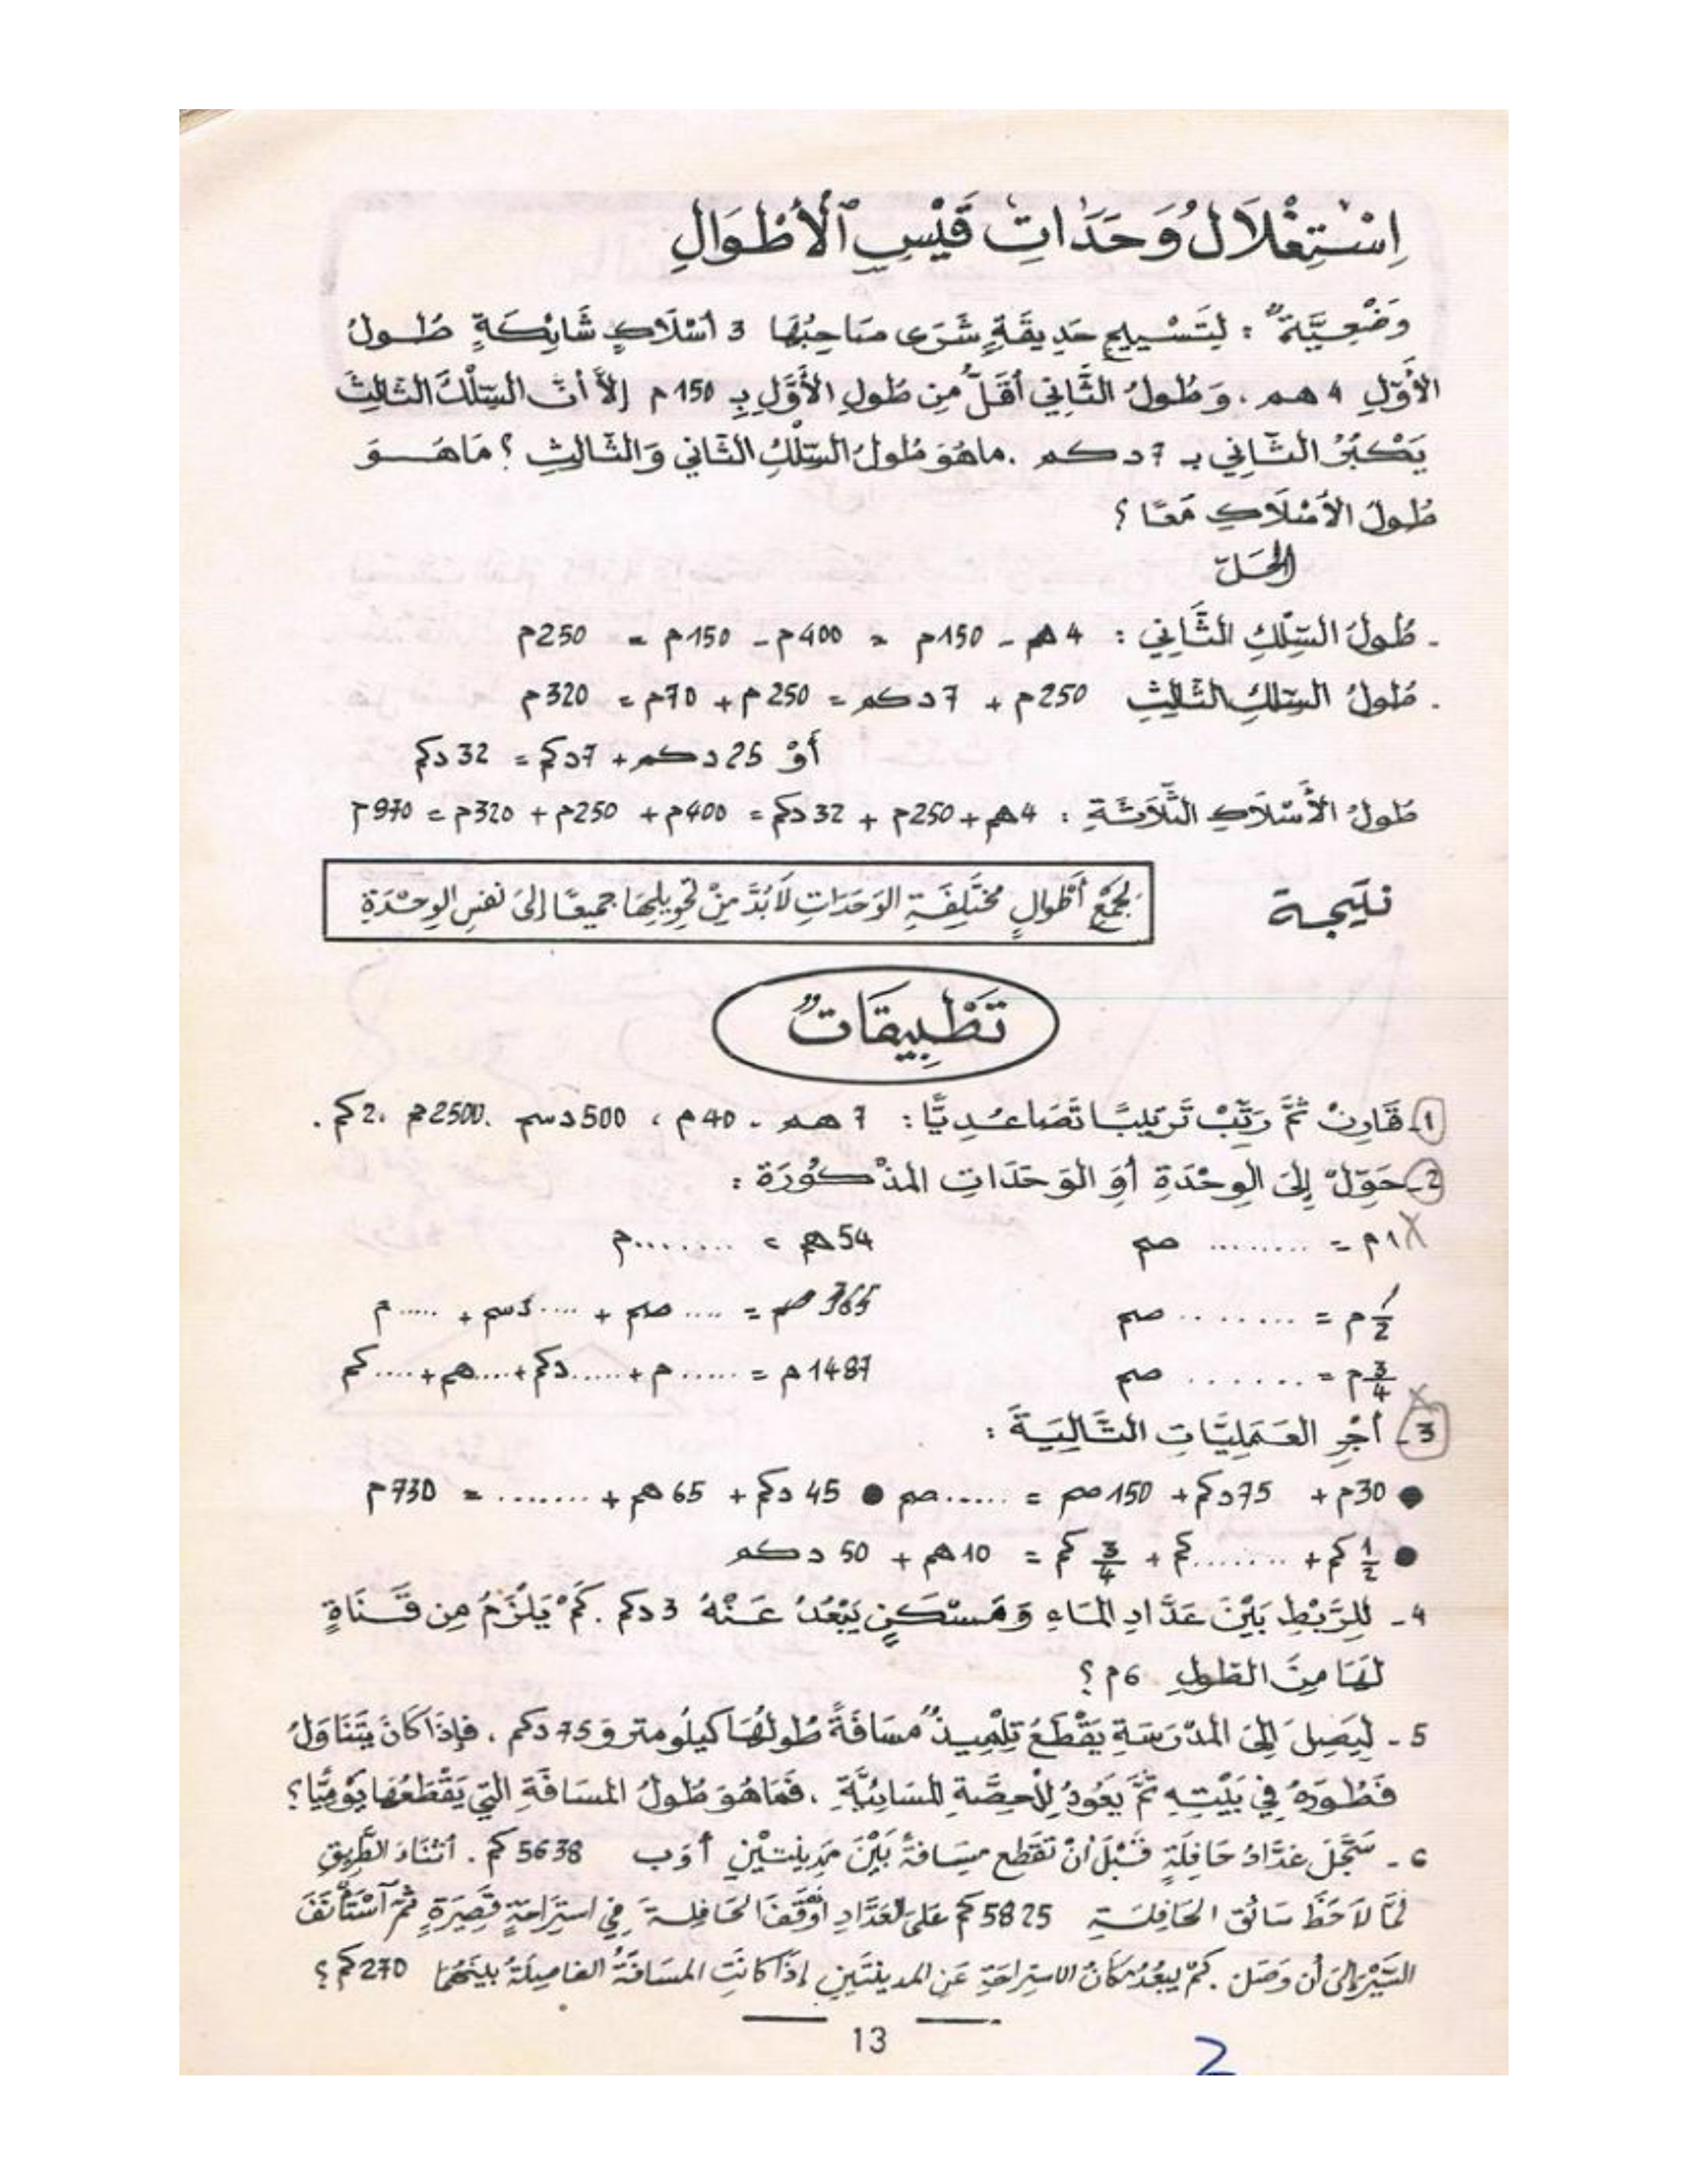 اِسْتِغْلَالُ وَحَدَاتِ قَيْسِ ٱلْأَطْوَالِ
وَضْعِيَّةٌ : لِتَسْيِيجِ حَدِيقَةٍ شَرَى صَاحِبُهَا 3 أَسْلَاكٍ شَائِكَةٍ طُولُ
الأَوَّلِ 4 هم . وَطُولُ الثَّانِي أَقَلُّ مِن طُولِ الأَوَّلِ بِـ 150 م إِلاَّ أنَّ السِّلْكَ الثَّالِثَ
يَكْبُرُ الثَّانِي بـ 7 دكم . ماهُوَ طُولُ السِّلْكِ الثَّانِي وَالثَّالِثِ ؟ مَاهَـــوَ
طُولُ الأَسْلَاكِ مَعًا ؟
الحَلّ
- طُولُ السِّلْكِ الثَّانِي : 4 هم - 150م = 400م - 150م = 250م
- طُولُ السِّلكِ الثَّالِثِ 250م + 7 دكم = 250م + 70م = 320م
أَوْ 25 دكم + 7دكم = 32 دكم
طُولُ الأَسْلَاكِ الثَّلَاثَةِ : 4هم + 250م + 32دكم = 400م + 250م + 320م = 970م
نتيجة
لِجَمْعِ أَطْوَالٍ مُخْتَلِفَةِ الوَحَدَاتِ لَابُدَّ مِنْ تَحْوِيلِهَا جَمِيعًا إلىَ نَفسِ الوِحْدَةِ
تَطْبِيقَاتٌ
1- قَارِنْ ثُمَّ رَتِّبْ تَرتِيبًا تَصَاعُدِيًّا : 7 هم . 40م ، 500 دسم . 2500م .2كم .
2- حَوِّلْ إِلىَ الوِحْدَةِ أوِ الوَحَدَاتِ المَذْكُورَة :
1م = ......... صم 54هم = ........م
1/2 م = ........ صم 365 صم = .... صم + ....دسم + ..... م
3/4 م = ....... صم 1487 م = ......م + ......دكم + ....هم + ....كم
3- أَجْرِ العَمَلِيَّاتِ التَّالِيَةَ :
● 30م + 75دكم + 150صم = ......صم ● 45 دكم + 65هم + ........ = 730م
● 1/2 كم + ........كم + 3/4 كم = 10هم + 50 دكم
4- لِلرَّبْطِ بَيْنَ عَدَّادِ المَاءِ وَمَسْكَنٍ يَبْعُدُ عَنْهُ 3 دكم . كَمْ يَلْزَمُ مِن قَنَاةٍ
لَهَا مِنَ الطُولِ 6م ؟
5- لِيَصِلَ إِلىَ المَدْرَسَةِ يَقْطَعُ تِلْمِيذٌ مَسَافَةً طُولُهَا كيلُومتر وَ 75 دكم . فَإِذَا كَانَ يَتَنَاوَلُ
فَطُورَهُ فِي بَيْتِهِ ثُمَّ يَعُودُ لِلْحِصَّةِ المَسَائِيَّةِ ، فَمَا هُوَ طُولُ المَسَافَةِ الَّتِي يَقْطَعُهَا يَوْمِيًّا ؟
6- سَجَّلَ عَدَّادُ حَافِلَةٍ قَبْلَ أنْ تَقْطَع مَسَافَةً بَيْنَ مَدِينَتَيْنِ أ وَ ب 5638 كم . أَثْنَاءَ الطَّرِيقِ
لَمَّا لَاحَظَ سَائقُ الحَافِلَةِ 5825 كم عَلَى العَدَّادِ أَوْقَفَ الحَافِلَةَ فِي اسْتِرَاحَةٍ قَصِيرَةٍ ثُمَّ ٱسْتَأْنَفَ
السَّيْرَ إِلىَ أن وَصَلَ . كَمْ يَبعُدُ مَكَانُ الاسْتِرَاحَةِ عَنِ المَدِينَتَيْنِ إِذَا كَانَتِ المَسَافَةُ الفَاصِلَةُ بَينَهُمَا 270كم ؟
13
2